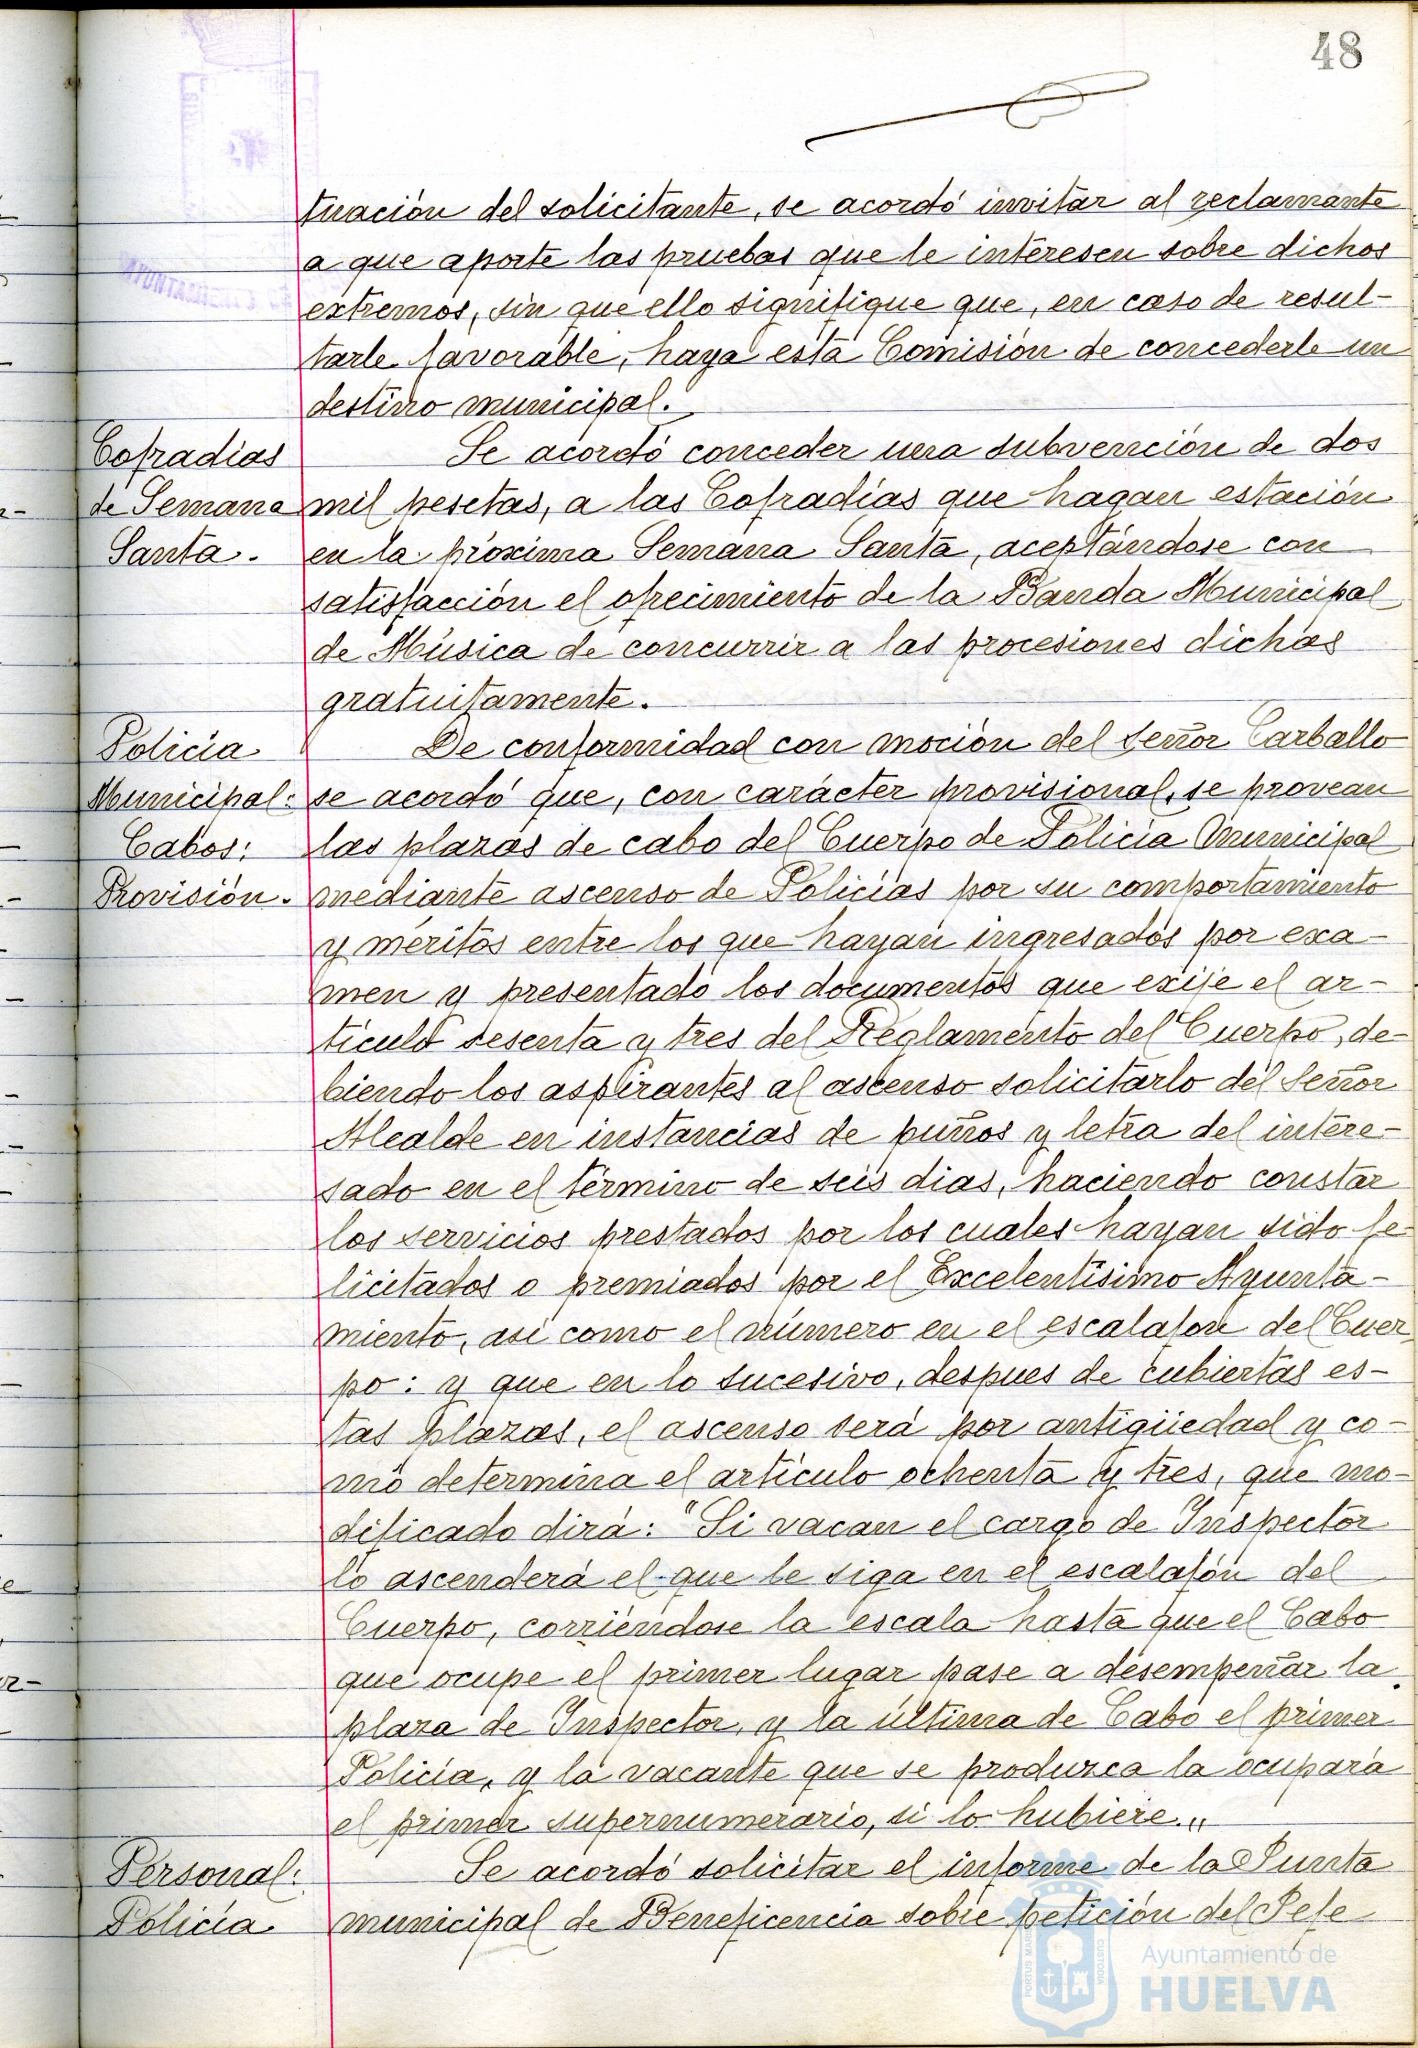 48
tuación del solicitante, se acordó invitar al reclamante
a que aporte las pruebas que le interesen sobre dichos
extremos, sin que ello signifique que, en caso de resul-
tarle favorable, haya esta Comisión de concederle un
destino municipal.
Cofradías
de Semana
Santa.
Se acordó conceder una subvención de dos
mil pesetas, a las Cofradías que hagan estación
en la próxima Semana Santa, aceptándose con
satisfacción el ofrecimiento de la Banda Municipal
de Música de concurrir a las procesiones dichas
gratuitamente.
Policía
Municipal:
Cabos:
Provisión.
De conformidad con moción del Señor Carballo
se acordó que, con carácter provisional, se provean
las plazas de cabo del Cuerpo de Policía Municipal
mediante ascenso de Policías por su comportamiento
y méritos entre los que hayan ingresados por exa-
men y presentado los documentos que exije el ar-
tículo sesenta y tres del Reglamento del Cuerpo, de-
biendo los aspirantes al ascenso solicitarlo del Señor
Alcalde en instancias de puños y letra del intere-
sado en el término de seis dias, haciendo constar
los servicios prestados por los cuales hayan sido fe-
licitados o premiados por el Excelentísimo Ayunta-
miento, asi como el número en el escalafon del Cuer
po: y que en lo sucesivo, despues de cubiertas es-
tas plazas, el ascenso será por antigüedad y co-
mo determina el artículo ochenta y tres, que mo-
dificado dirá: "Si vacan el cargo de Inspector
lo ascenderá el que le siga en el escalafón del
Cuerpo, corriéndose la escala hasta que el Cabo
que ocupe el primer lugar pase a desempeñar la
plaza de Inspector, y la última de Cabo el primer
Policía, y la vacante que se produzca la ocupará
el primer supernumerario, si lo hubiere."
Personal:
Policía
Se acordó solicitar el informe de la Junta
municipal de Beneficencia sobre petición del Jefe
Ayuntamiento de
HUELVA